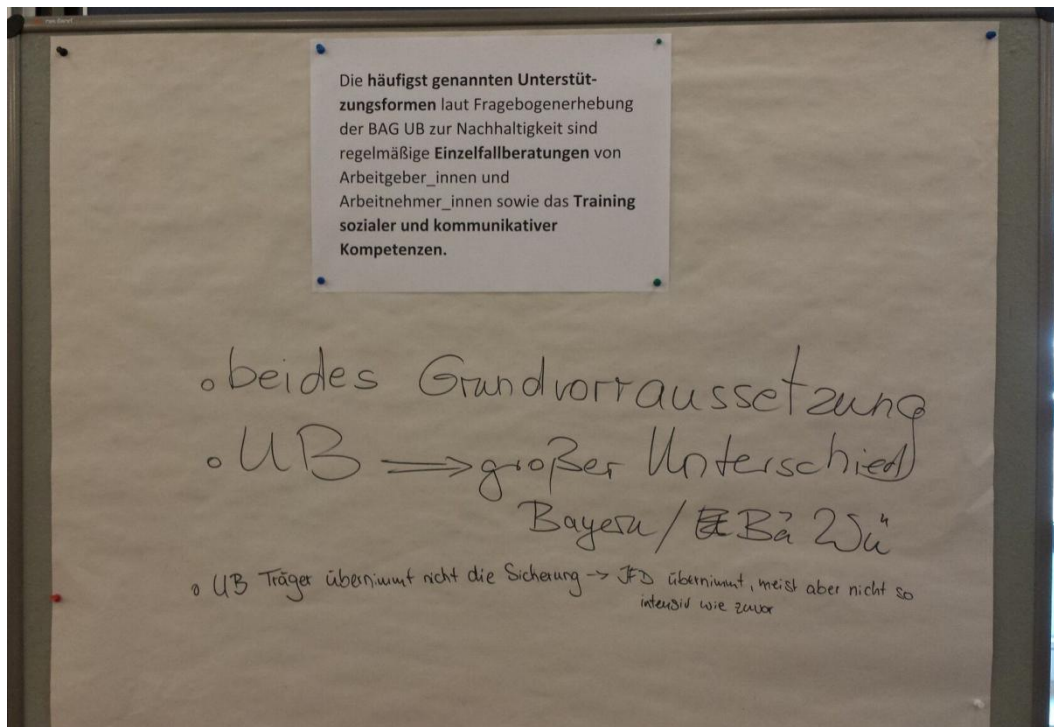 Die häufigst genannten Unterstüt-
zungsformen laut Fragebogenerhebung
der BAG UB zur Nachhaltigkeit sind
regelmäßige Einzelfallberatungen von
Arbeitgeber_innen und
Arbeitnehmer_innen sowie das Training
sozialer und kommunikativer
Kompetenzen.
∘ beides Grundvorraussetzung
∘ UB ⟹ großer Unterschied
Bayern / Bä Wü
∘ UB Träger übernimmt nicht die Sicherung -> IFD übernimmt, meist aber nicht so
intensiv wie zuvor